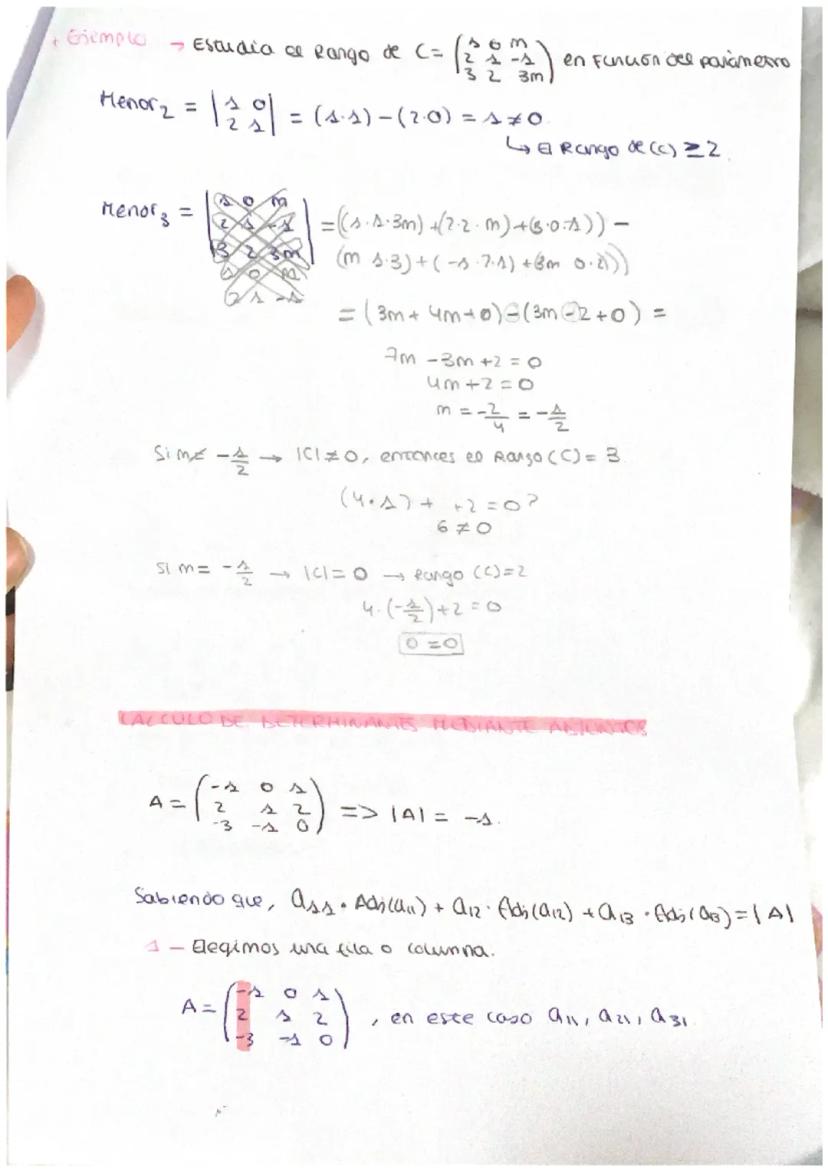 + Ejemplo → Estudia el Rango de C = (1 0 m
2 1 -1
3 2 3m) en función del parámetro
Menor₂ = |1 0
2 1| = (1·1) - (2·0) = 1 ≠ 0
↳ El Rango de (C) ≥ 2.
Menor₃ = |1 0 m
2 1 -1
3 2 3m|
1 0 m
2 1 -1
= ((1·1·3m) + (2·2·m) + (3·0·-1)) -
(m 1·3) + (-1·2·1) + (3m 0·2))
= (3m + 4m + 0) - (3m - 2 + 0) =
7m - 3m + 2 = 0
4m + 2 = 0
m = -2/4 = -1/2
Si m ≠ -1/2 → |C| ≠ 0, entonces el Rango (C) = 3
(4·1) + +2 = 0?
6 ≠ 0
Si m = -1/2 → |C| = 0 → Rango (C) = 2
4·(-1/2) + 2 = 0
0 = 0
CALCULO DE DETERMINANTES MEDIANTE ADJUNTOS
A = (-1 0 1
2 1 2
-3 -1 0) => |A| = -1.
Sabiendo que, a₁₁ · Adj(a₁₁) + a₁₂ · Adj(a₁₂) + a₁₃ · Adj(a₁₃) = |A|
1 - Elegimos una fila o columna.
A = (-1 0 1
2 1 2
-3 -1 0) , en este caso a₁₁, a₂₁, a₃₁